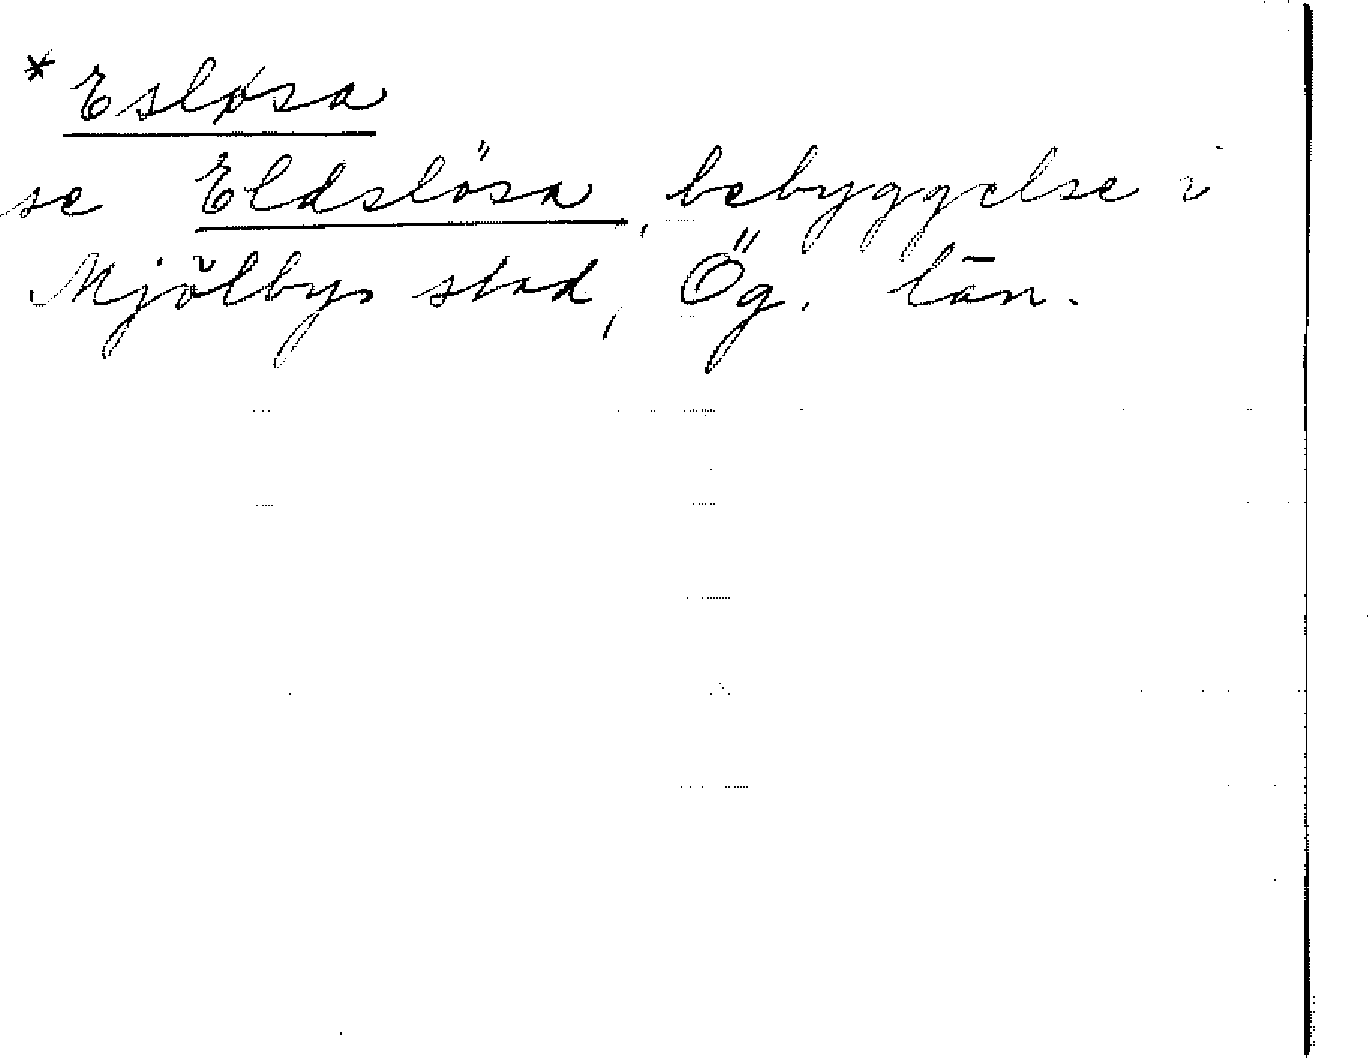 *Esløsa
se Eldslösa, bebyggelse i
Mjölby stad, Ög. län.